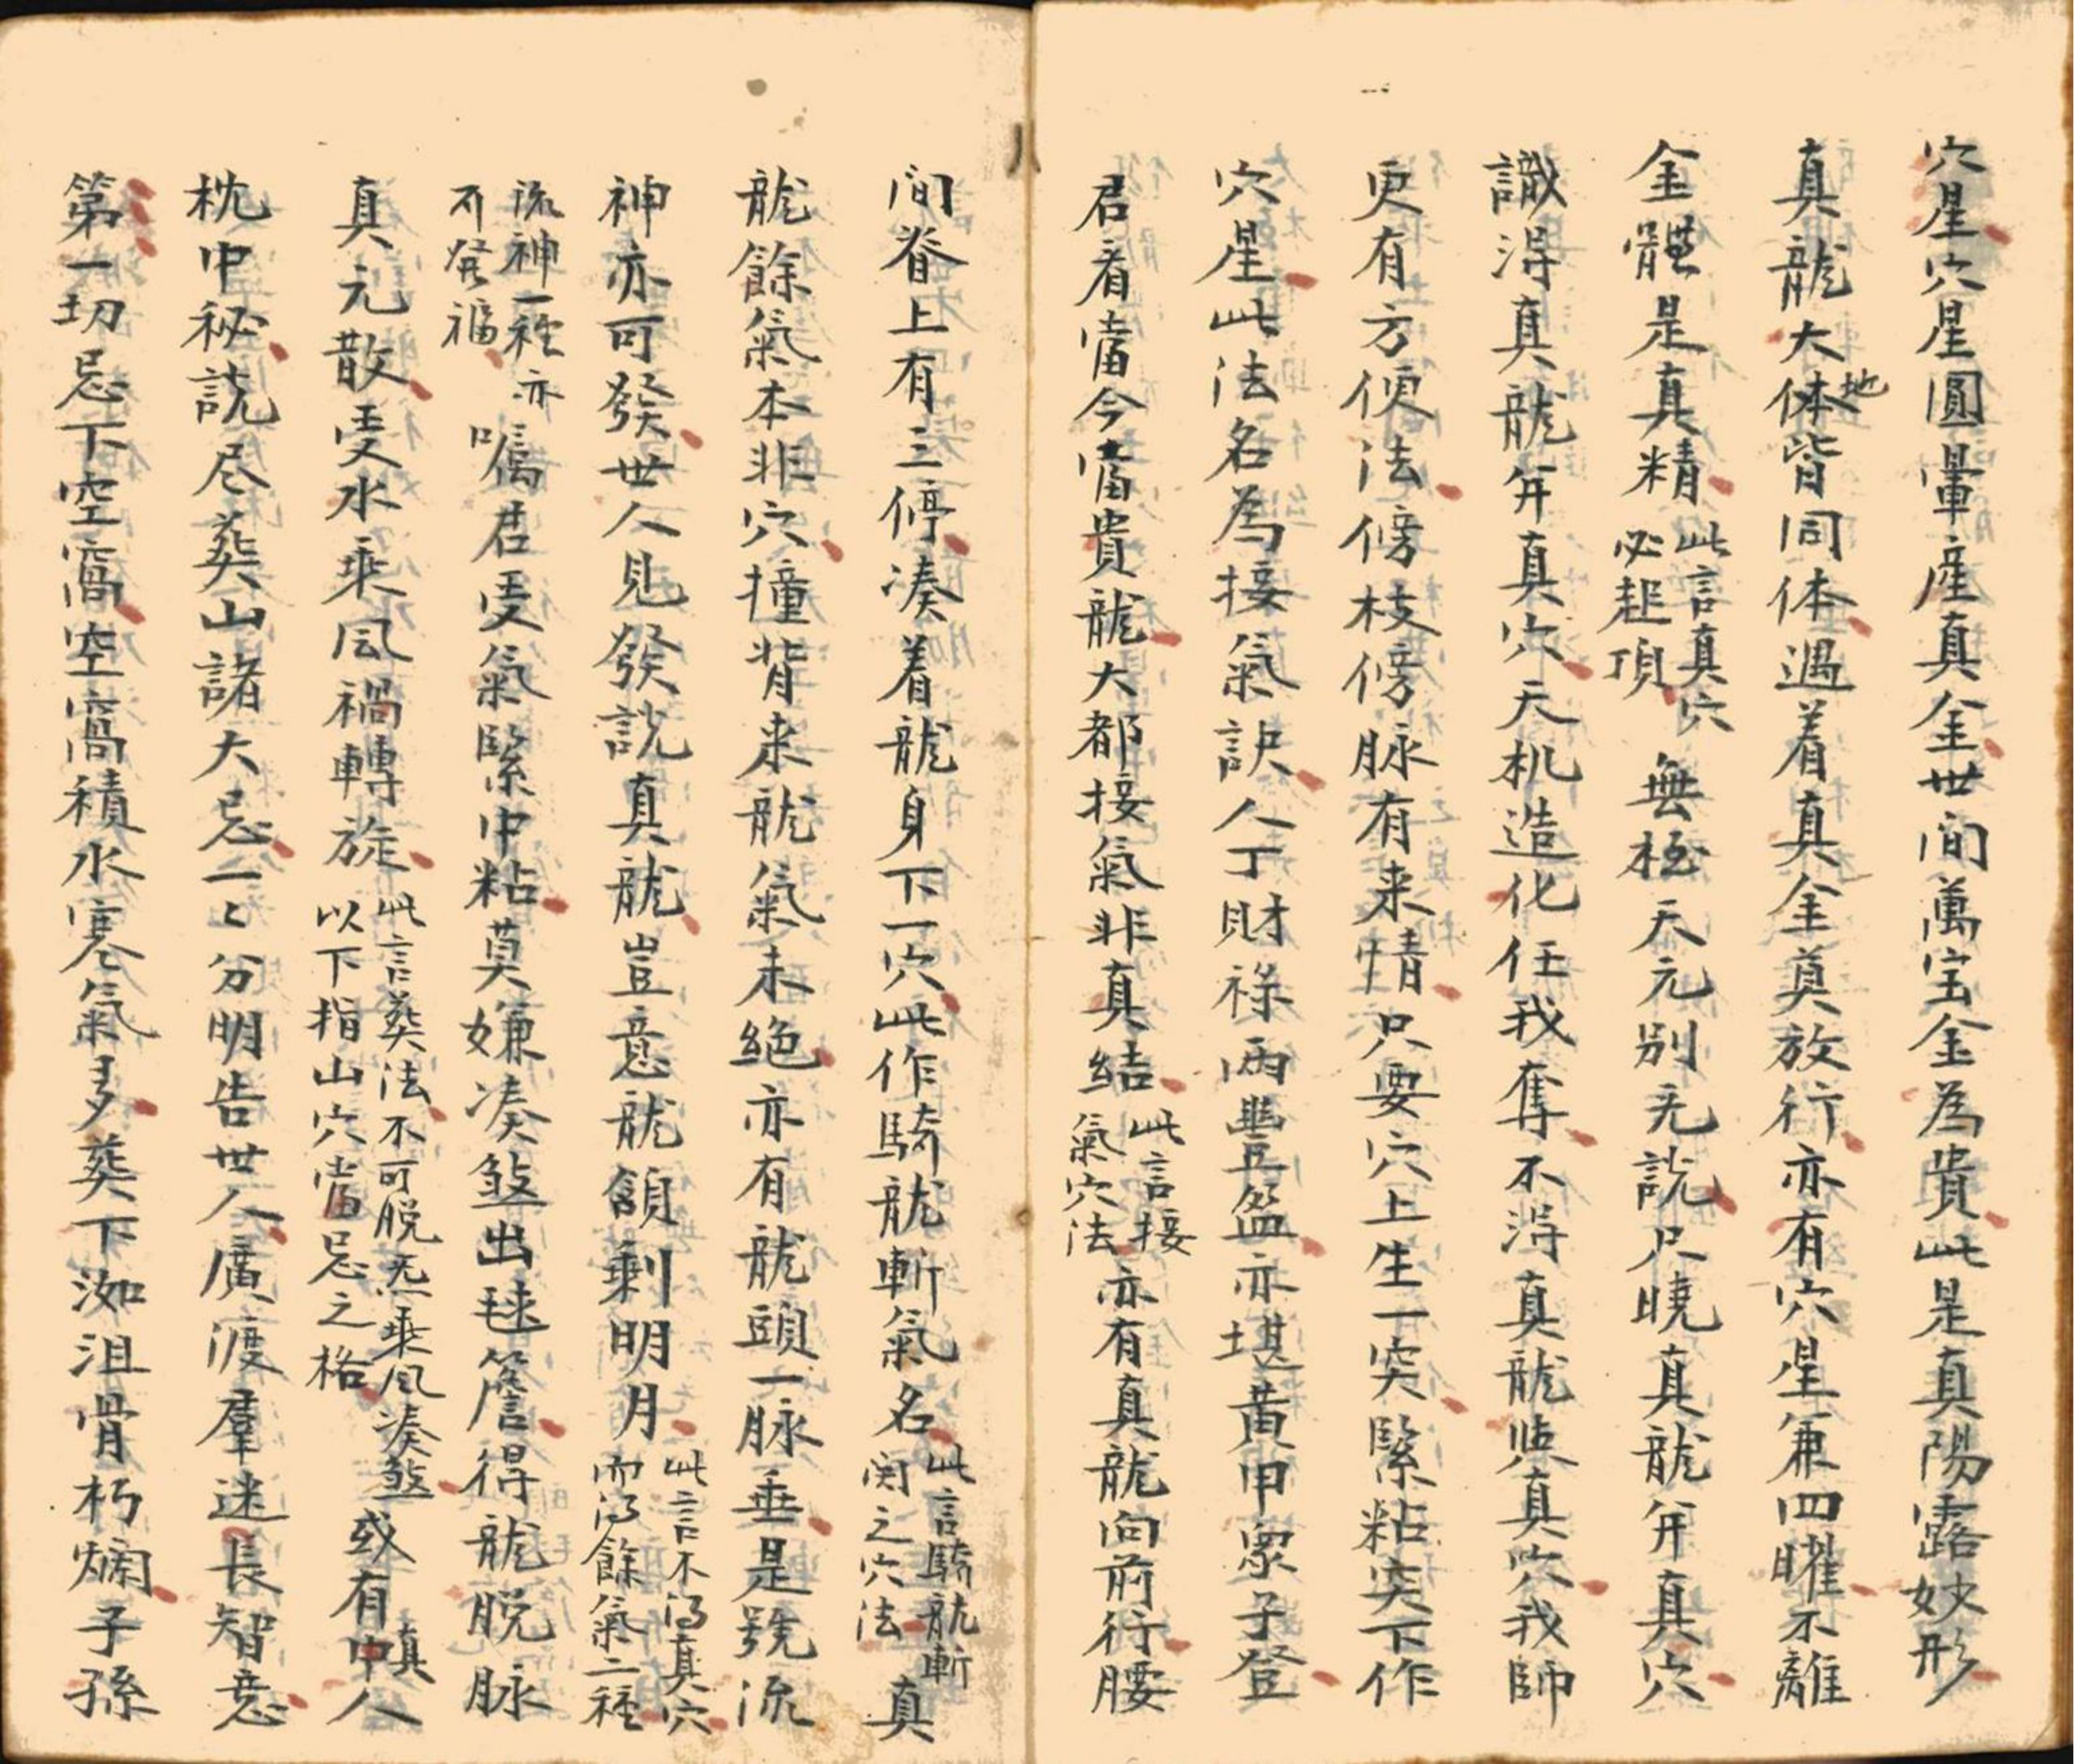 穴星穴星圓暈産真金世间萬宝金為貴此是真陽露妙形
真龍大体地皆同体遇着真金莫放行亦有穴星兼四曜不離
金體是真精此言真穴必起頂無極天元别无説只曉真龍并真穴
識得真龍并真穴天机造化任我奪不得真龍與真穴我師
更有方便法傍枝傍脉有来情只要穴上生一突緊粘突下作
穴星此法名為接氣訣人丁財祿両豐盈亦堪黄甲衆子登
君看當今當貴龍大都接氣非真結此言接氣穴法亦有真龍向前行腰
间脊上有三停凑着龍身下一穴此作騎龍斬氣名此言騎龍斬関之穴法真
龍餘氣本非穴撞背来龍氣未絶亦有龍頭一脉垂是號流
神亦可發世人見發説真龍豈意龍領剩明月此言不得真穴而得餘氣二種
流神一種亦不発福嘱君受氣緊中粘莫嫌凑煞出毬簷得龍脱脉
真元散受水乘风禍轉旋此言葬法不可脱炁乘风凑煞以下指山穴當忌之格或有中真人
枕中秘説尽葬山諸大忌一々分明告世人廣渡羣迷長智意
第一切忌下空窩空窩積水寒氣多葬下洳沮骨朽爛子孫